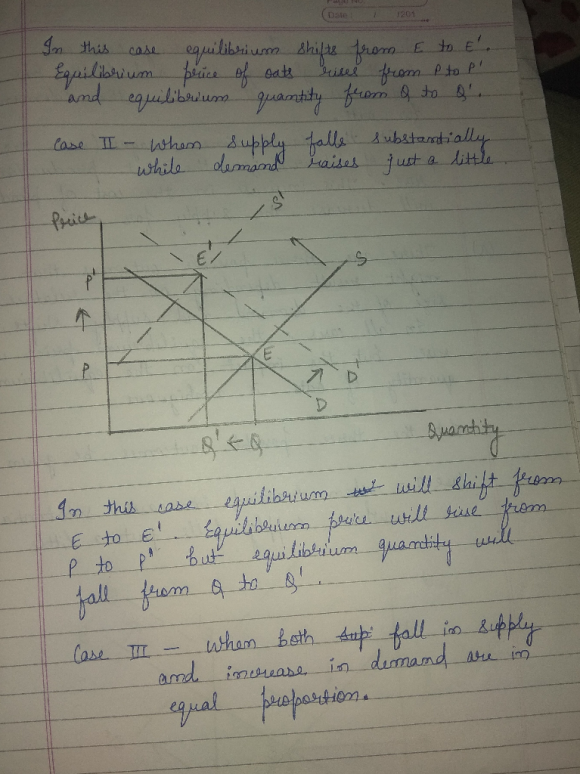 Page No.
Date : / /201
In this case equilibrium shifts from E to E'.
Equilibrium price of oats rises from P to P'
and equilibrium quantity from Q to Q'.
Case II - When supply falls substantially
while demand raises just a little.
Price
S'
S
E'
P'
P
E
D'
D
Q' ← Q
Quantity
In this case equilibrium will shift from
E to E'. Equilibrium price will rise from
P to P' but equilibrium quantity will
fall from Q to Q'.
Case III - When both fall in supply
and increase in demand are in
equal proportion.